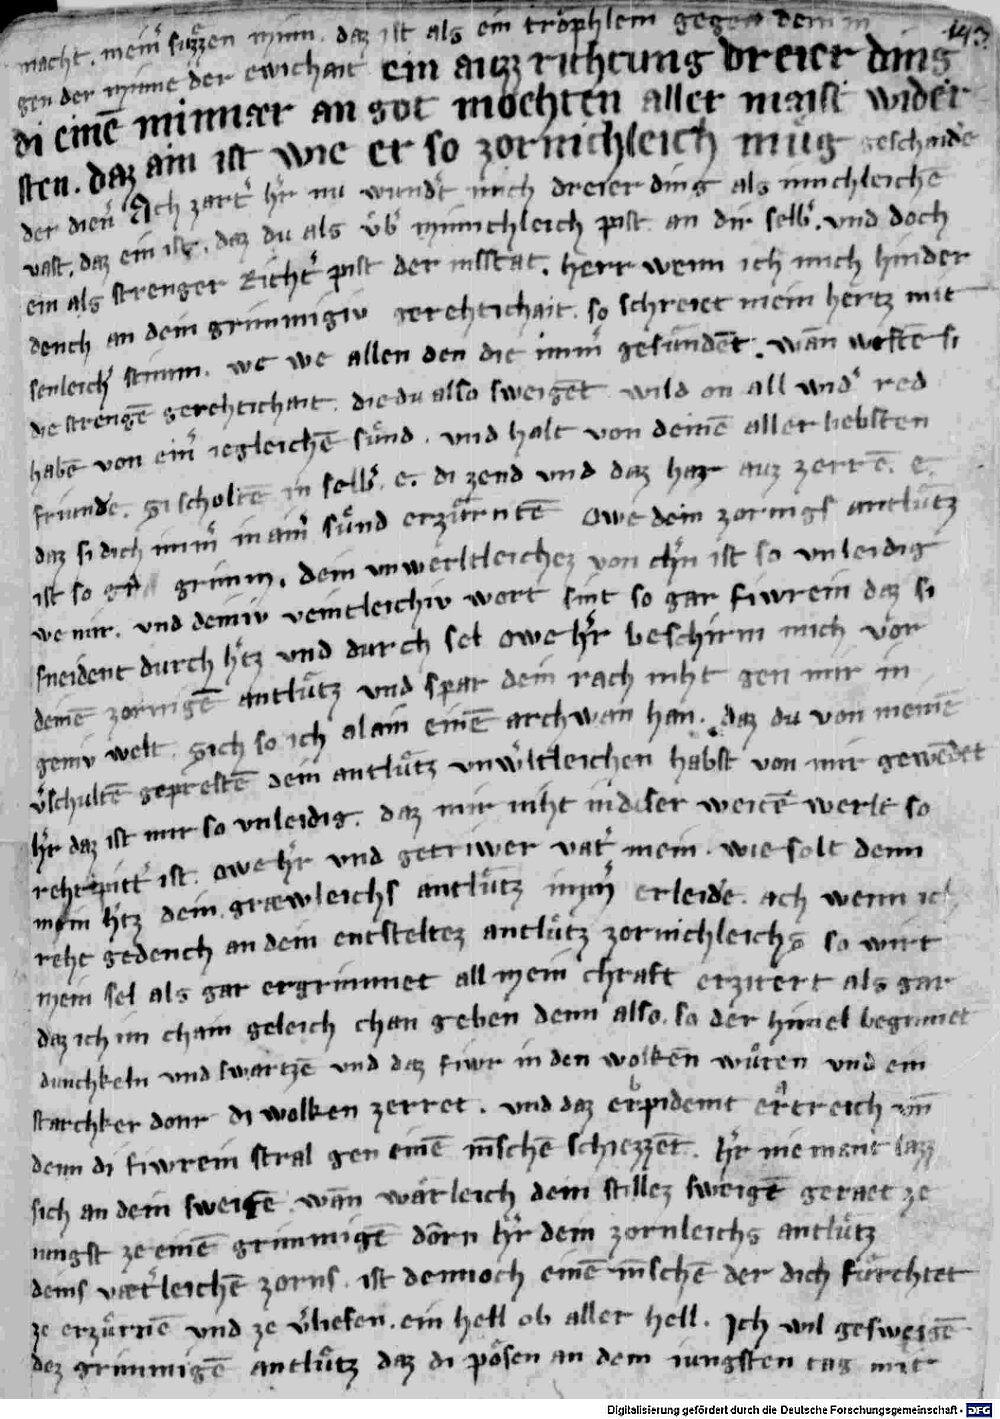 143
macht. mein süzzen minn. daz ist als ein tröphlein gegen dem m
gen der minne der ewichait ein auzz richtung dreier ding
di einē minnær an got möchten aller maist wider
sten. daz ain ist wie er so zornichleich mug geschaide
der dien Ach zart h̄r nu wundt mich dreier ding als innchleiche
vast. daz ein ist. daz du als üb minnchleich pist an dir selb. vnd doch
ein als strenger Richt pist der misstat. herr wenn ich mich hinder
dench an dein grimmigiv gerehtichait. so schreiet mein hertz mit
senleich stimm. we we allen den die imm gesündēt. wān westē si
die strengē gerehtichait die du also sweigēt wild on all wid red
habē von ein iegleichē sünd. vnd halt von deinē aller liebsten
friunde. si scholtē in selb. e. di zend vnd daz har auz zerrē. e.
daz si dich imm in ain sünd erzürntē Owe dein zornigs antlütz
ist so gra grimm. dein vnwertleichez von chn ist so vnleidig
we mir. vnd deiniv veintleichiv wort sint so gar fiwrein daz si
sneident durch h̄tz vnd durch sel Owe h̄r beschirm mich vor
deinē zornigē antlütz vnd spar dein rach niht gen mir in
geniv welt. Sich so ich alain einē archwan han. daz du von meinē
vschultē geprestē dein antlütz vnwltleichen habst von mir gewēdet
h̄r daz ist mir so vnleidig. daz mir niht in diser weitē werlt so
reht pitt ist. Owe h̄r vnd getriwer vat mein. wie solt denn
mein h̄tz dein græwleichs antlütz imm erleidē. ach wenn ich
reht gedench an dein entsteltez antlütz zornichleichs so wirt
mein sel als gar ergrimmet all mein chraft erzitert als gar
daz ich im chain geleich chan geben denn also. so der himel beginnet
dunchkeln vnd swartzē vnd daz fiwr in den wolkēn wüten vnd ein
starchker donr di wolken zerret. vnd daz erpidemt ertreich vn̄
denn di fiwrein stral gen einē m̄schē schiezzēt. h̄r niemant lazz
sich an dein sweigē. wān wærleich dein stillez sweigē geraet ze
iungst ze einē grimmigē dorn h̄r dein zornleichs antlütz
deins vætleichē zorns. ist dennoch einē m̄schē der dich fürchtet
ze erzürnē vnd ze vliesen. ein hell ob aller hell. Ich wil gesweigē
dez grimmigē antlütz daz di pösen an dem iungsten tag mit
Digitalisierung gefördert durch die Deutsche Forschungsgemeinschaft - DFG